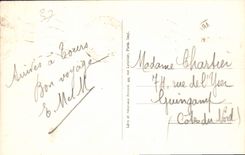 Arrivés à Tours
Bon voyage
E. M et M
Madame Chartier
74 rue de l'Yser
Guingamp
(Côtes du Nord)